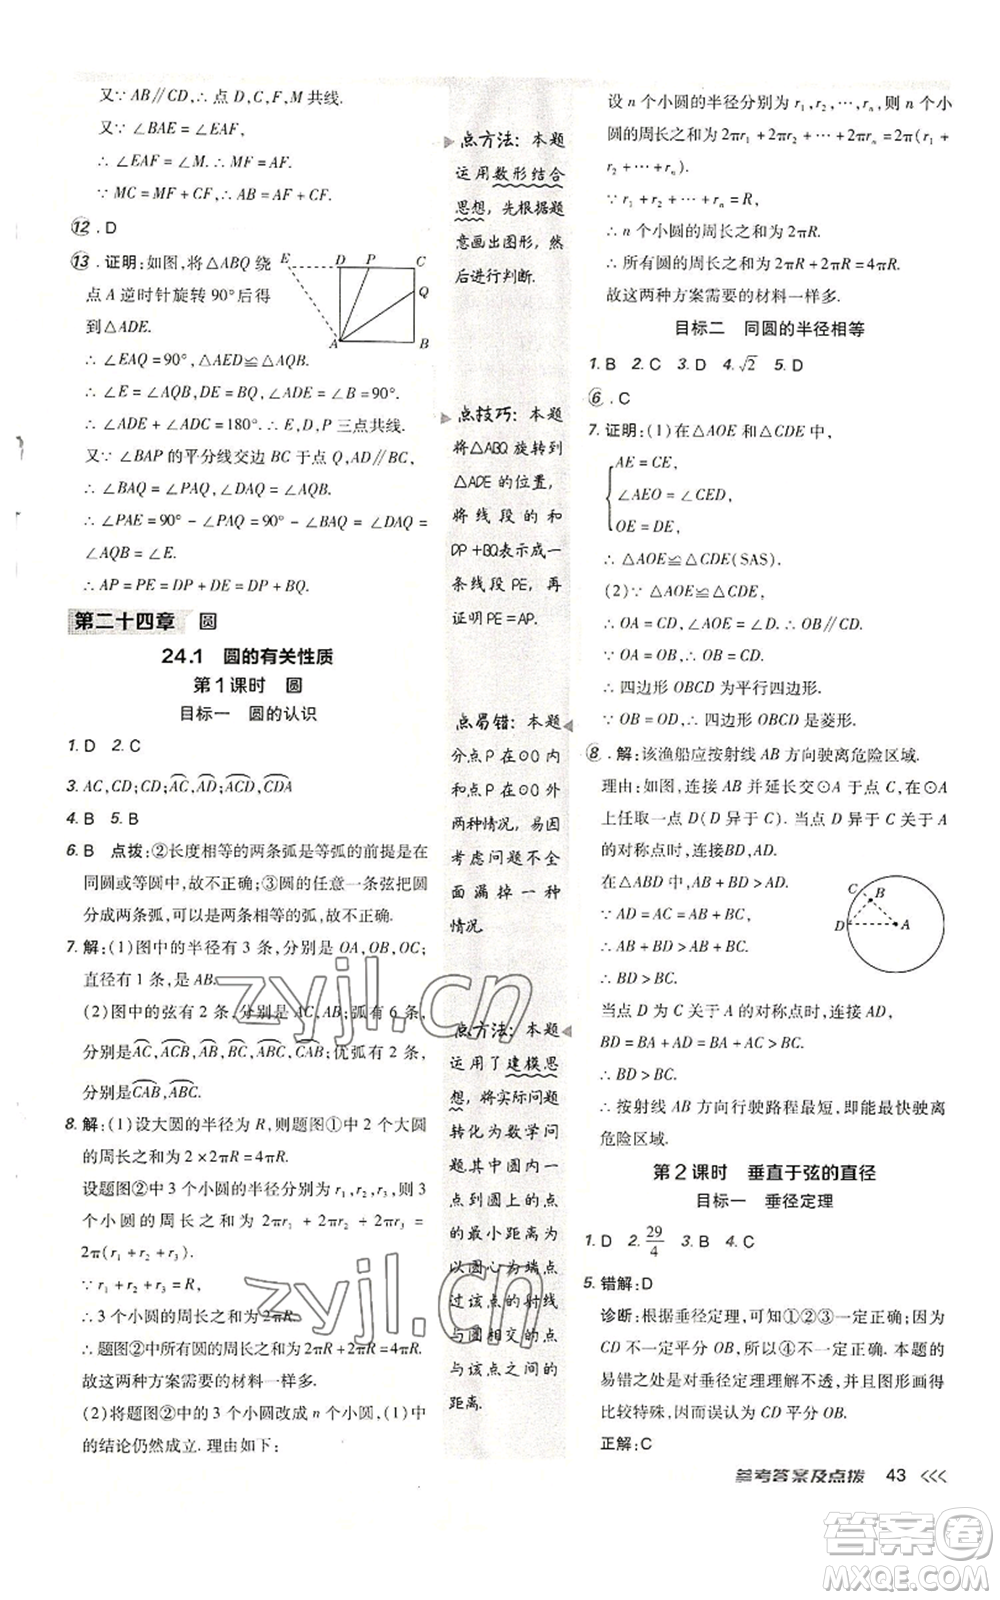 又∵ AB∥CD,∴ 点 D,C,F,M 共线.
又∵ ∠BAE = ∠EAF,
∴ ∠EAF = ∠M. ∴ MF = AF.
∵ MC = MF + CF,∴ AB = AF + CF.
12. D
13. 证明:如图,将△ABQ 绕
点 A 逆时针旋转 90°后得
到△ADE.
∴ ∠EAQ = 90°,△AED≌△AQB.
∴ ∠E = ∠AQB,DE = BQ,∠ADE = ∠B = 90°.
∴ ∠ADE + ∠ADC = 180°. ∴ E,D,P 三点共线.
又∵ ∠BAP 的平分线交边 BC 于点 Q,AD∥BC,
∴ ∠BAQ = ∠PAQ,∠DAQ = ∠AQB.
∴ ∠PAE = 90° - ∠PAQ = 90° - ∠BAQ = ∠DAQ =
∠AQB = ∠E.
∴ AP = PE = DP + DE = DP + BQ.
E D P C
Q
A B
第二十四章 圆
24.1 圆的有关性质
第 1 课时 圆
目标一 圆的认识
1. D 2. C
3. AC,CD;CD;AC,AD,ACD,CDA
4. B 5. B
6. B 点拨:②长度相等的两条弧是等弧的前提是在
同圆或等圆中,故不正确;③圆的任意一条弦把圆
分成两条弧,可以是两条半圆,故不正确.
7. 解:(1)图中的半径有 3 条,分别是 OA,OB,OC;
直径有 1 条,是 AB.
(2)图中的弦有 2 条,分别是 AC,AB;弧有 6 条,
分别是AC,ACB,AB,BC,ABC,CAB;优弧有 2 条,
分别是CAB,ABC.
8. 解:(1)设大圆的半径为 R,则题图①中 2 个大圆
的周长之和为 2×2πR = 4πR.
设题图②中 3 个小圆的半径分别为 r₁,r₂,r₃,则 3
个小圆的周长之和为 2πr₁ + 2πr₂ + 2πr₃ =
2π(r₁ + r₂ + r₃).
∵ r₁ + r₂ + r₃ = R,
∴ 3 个小圆的周长之和为 2πR.
∴ 题图②中所有圆的周长之和为 2πR + 2πR = 4πR.
故这两种方案需要的材料一样多.
(2)将题图②中的 3 个小圆改成 n 个小圆,(1)中
的结论仍然成立. 理由如下:
点方法:本题
运用数形结合
思想,先根据题
意画出图形,然
后进行判断.
点技巧:本题
将△ABQ 旋转到
△ADE 的位置,
将线段的和
DP+BQ表示成一
条线段 PE,再
证明PE=AP.
点易错:本题
分点P 在⊙O 内
和点P 在⊙O 外
两种情况,易因
考虑问题不全
面漏掉一种
情况.
点方法:本题
运用了建模思
想,将实际问题
转化为数学问
题.其中圆内一
点到圆上的点
的最小距离为
以圆心为端点
过该点的射线
与圆相交的点
与该点之间的
距离.
设 n 个小圆的半径分别为 r₁,r₂,…,rₙ,则 n 个小
圆的周长之和为 2πr₁ + 2πr₂ + … + 2πrₙ = 2π(r₁ +
r₂ + … + rₙ).
∵ r₁ + r₂ + … + rₙ = R,
∴ n 个小圆的周长之和为 2πR.
∴ 所有圆的周长之和为 2πR + 2πR = 4πR.
故这两种方案需要的材料一样多.
目标二 同圆的半径相等
1. B 2. C 3. D 4. √2 5. D
6. C
7. 证明:(1)在△AOE 和△CDE 中,
AE = CE,
∠AEO = ∠CED,
OE = DE,
∴ △AOE≌△CDE(SAS).
(2)∵ △AOE≌△CDE,
∴ OA = CD,∠AOE = ∠D. ∴ OB∥CD.
∵ OA = OB,∴ OB = CD.
∴ 四边形 OBCD 为平行四边形.
∵ OB = OD,∴ 四边形 OBCD 是菱形.
8. 解:该渔船应按射线 AB 方向驶离危险区域.
理由:如图,连接 AB 并延长交⊙A 于点 C,在⊙A
上任取一点 D(D 异于 C),D 不与点 C 关于点 A
的对称点时,连接BD,AD.
在△ABD 中,AB + BD > AD.
∵ AD = AC = AB + BC,
∴ AB + BD > AB + BC.
∴ BD > BC.
当点 D 为 C 关于 A 的对称点时,
BD = BA + AD = BA + AC.
∴ BD > BC.
∴ 按射线 AB 方向行驶路程最短,即能最快驶离
危险区域.
C B
D A
第 2 课时 垂直于弦的直径
目标一 垂径定理
1. D 2. 29/4 3. B 4. C
5. 错解:D
诊断:根据垂径定理,可知①②③一定正确;但弦
CD 不一定平分 OB,所以④不一定正确. 本题的
易错之处是对垂径定理理解不透,并且图形画得
比较特殊,因而误认为 CD 平分 OB.
正解:C
参考答案及点拨 43
zyjl.cn
zyjl.cn
答案圈
MXQE.COM